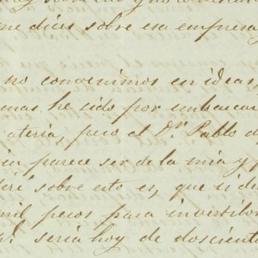 me dices sobre esa empresa
no convenimos en ideas,
mas he sido por embarcar
ateria, pero al Dr. Pablo d
cia parece ser de la mia y p
deré sobre esto es, que si de
mil pesos para invertirlo
seria hoy de doscient